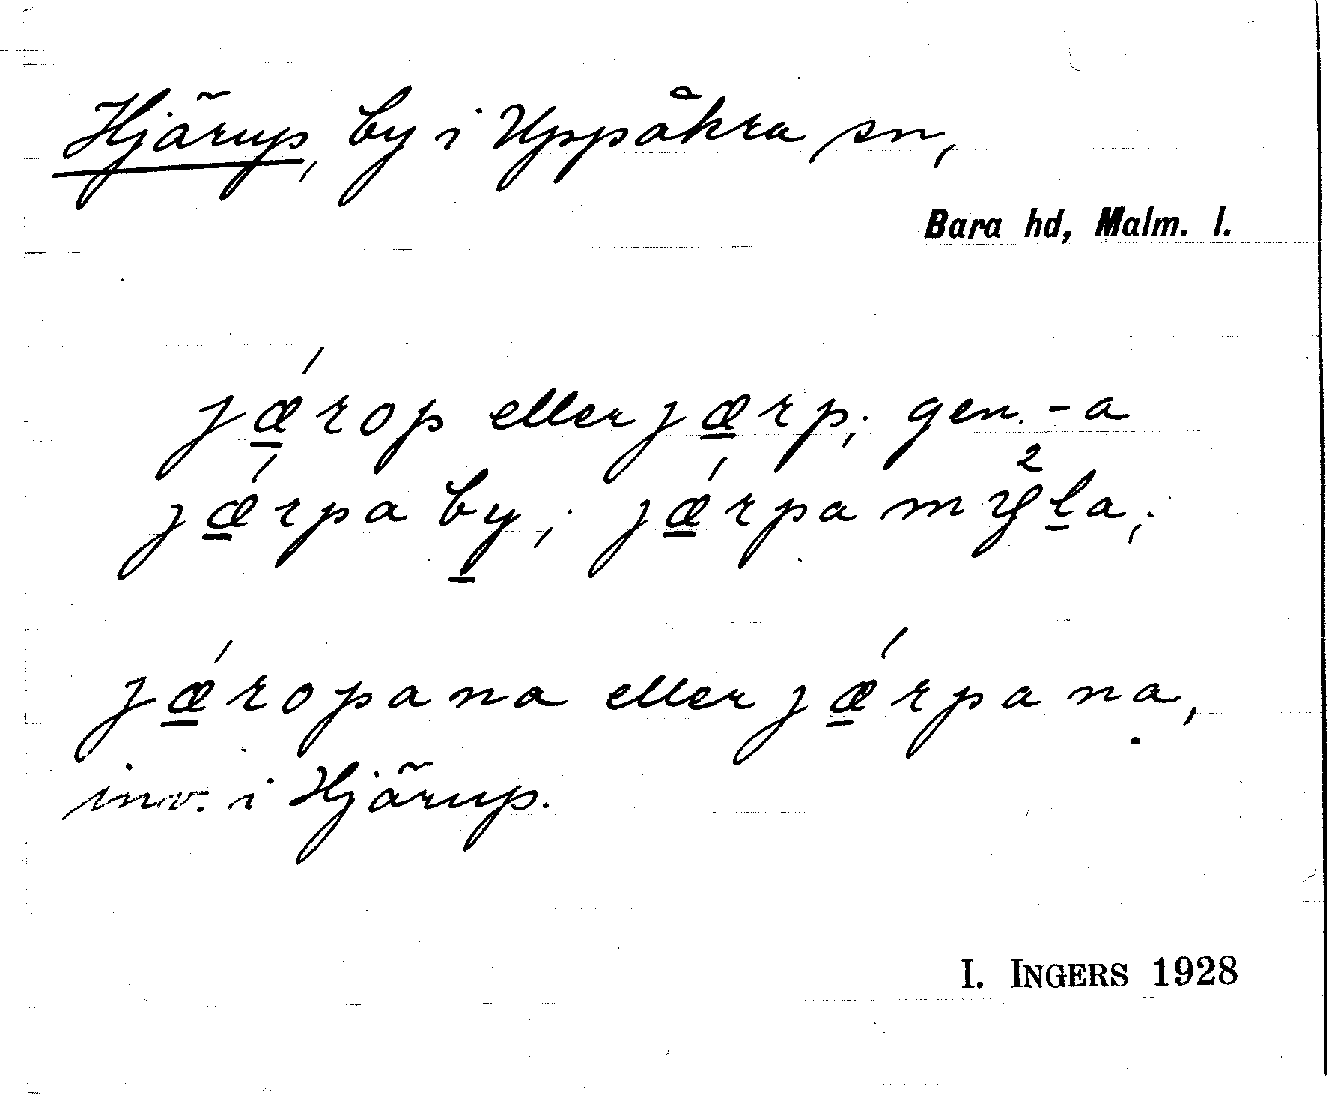 Hjärup, by i Uppåkra sn,
Bara hd, Malm. l.
jǽ̱rop eller jæ̱rp; gen. -a
jǽ̱rpa by̱; jǽ̱rpa mÿ²ḻa;
jǽ̱ropana eller jǽ̱rpana,
inv. i Hjärup.
I. INGERS 1928